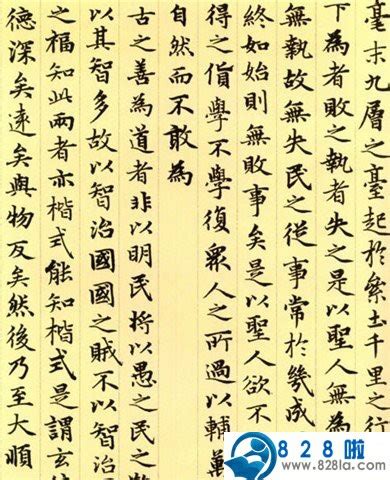 毫末九層之臺起於絫土千里之行
下為者敗之執者失之是以聖人無為
無執故無失民之從事常於幾成
終如始則無敗事矣是以聖人欲不
得之貨學不學復眾人之所過以輔萬
自然而不敢為
古之善為道者非以明民將以愚之民之
以其智多故以智治國國之賊不以智治
之福知此兩者亦楷式能知楷式是謂玄
德深矣遠矣與物反矣然後乃至大順
828啦
www.828la.com